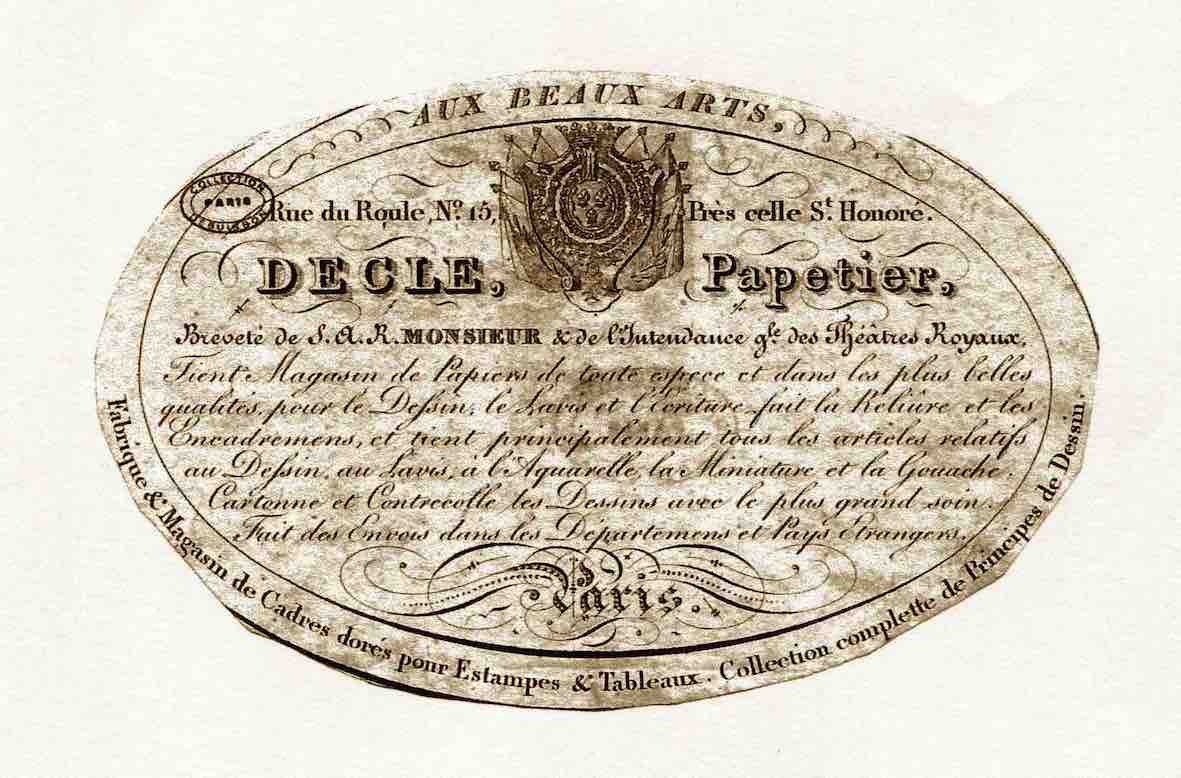 AUX BEAUX ARTS,
COLLECTION
PARIS
Rue du Roule, Nº. 15, Près celle St. Honoré.
DECLE, Papetier,
Breveté de S. A. R. MONSIEUR & de l'Intendance gle. des Théâtres Royaux,
Tient Magasin de Papiers de toute espece et dans les plus belles
qualités, pour le Dessin, le Lavis et l'Ecriture, fait la Reliûre et les
Encadremens, et tient principalement tous les articles relatifs
au Dessin, au Lavis, à l'Aquarelle, la Miniature et la Gouache.
Cartonne et Contrecolle les Dessins avec le plus grand soin.
Fait des Envois dans les Départemens et Pays Etrangers.
Paris.
Fabrique & Magasin de Cadres dorés pour Estampes & Tableaux. Collection complette de Principes de Dessin.